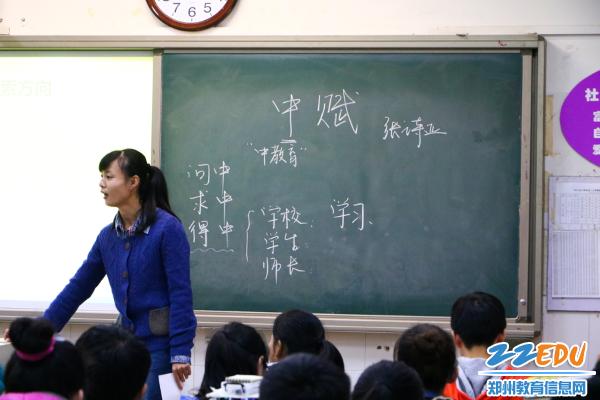 索方向
中赋
张诗亚
"中教育"
问中
求中
得中
学校
学生
师长
学习
社
富
自
爱
12
5
6
7
ZZEDU
郑州教育信息网